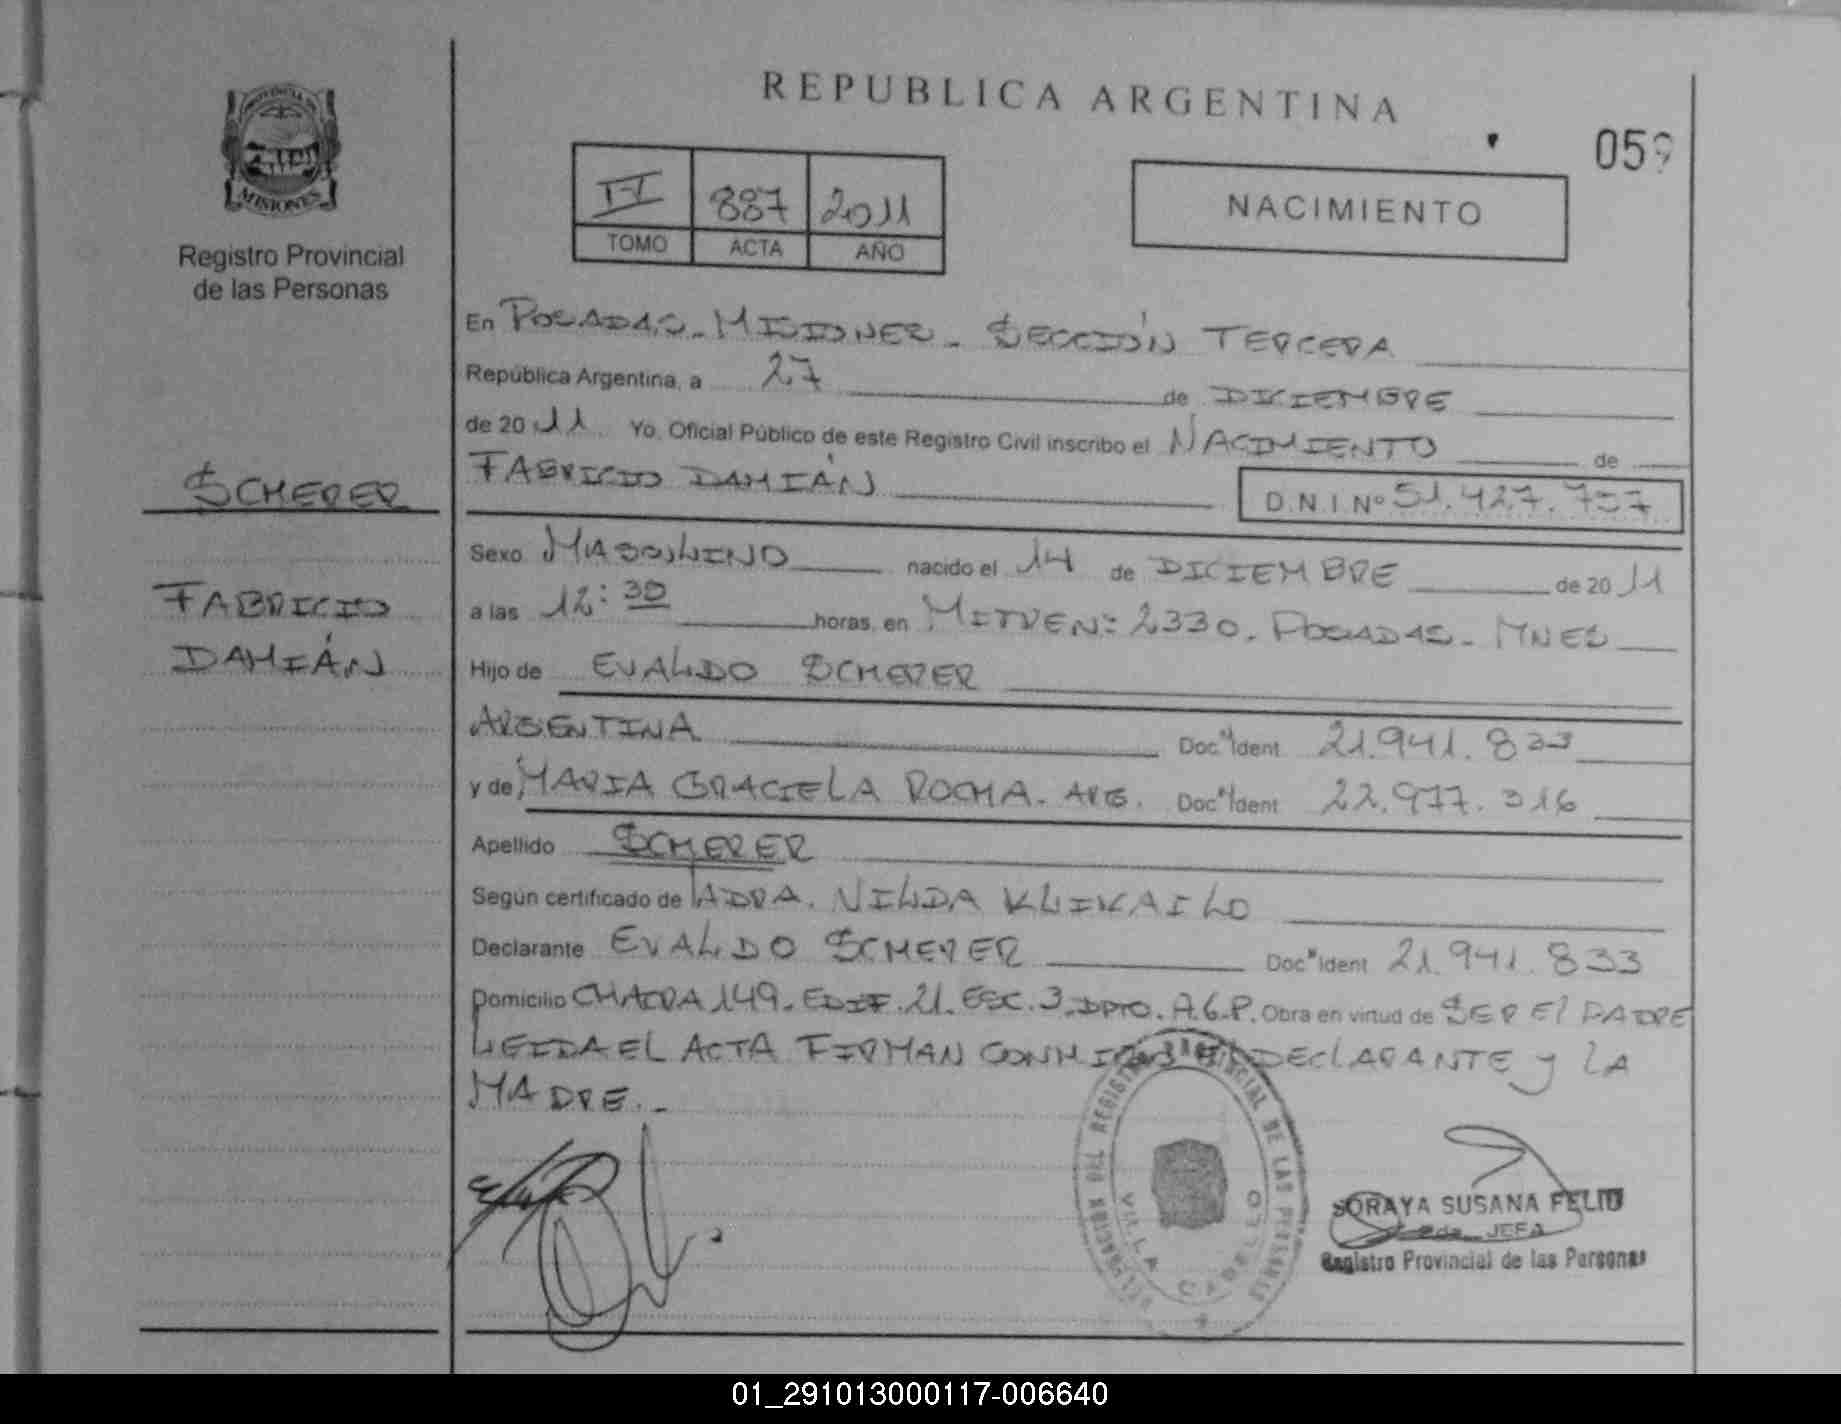 PROVINCIA DE
MISIONES
Registro Provincial
de las Personas
SCHERER
FABRICIO
DAMIÁN
REPUBLICA ARGENTINA
059
II 887 2011
TOMO ACTA AÑO
NACIMIENTO
En POSADAS - MISIONES - SECCIÓN TERCERA
República Argentina, a 27 de DICIEMBRE
de 2011 Yo, Oficial Público de este Registro Civil inscribo el NACIMIENTO de
FABRICIO DAMIÁN D.N.I. Nº 51.427.757
Sexo MASCULINO nacido el 14 de DICIEMBRE de 2011
a las 12:30 horas, en MITRE Nº 2330. POSADAS - MNES
Hijo de EVALDO SCHERER
ARGENTINA Doc. Ident 21.941.833
y de MARIA GRACIELA ROCHA. ARG. Doc. Ident 22.977.316
Apellido SCHERER
Según certificado de LA DRA. NILDA KLIKAILO
Declarante EVALDO SCHERER Doc. Ident 21.941.833
Domicilio CHACRA 149. EDIF. 21. ESC. 3. DPTO. A. 6. P. Obra en virtud de SER El PADRE
LEIDA EL ACTA FIRMAN CONMIGO EL DEClARANTE y LA
MADRE. -
DELEGACION DEL REGISTRO PROVINCIAL DE LAS PERSONAS
VILLA CABELLO
SORAYA SUSANA FELIU
2da. JEFA
Registro Provincial de las Personas
01_291013000117-006640